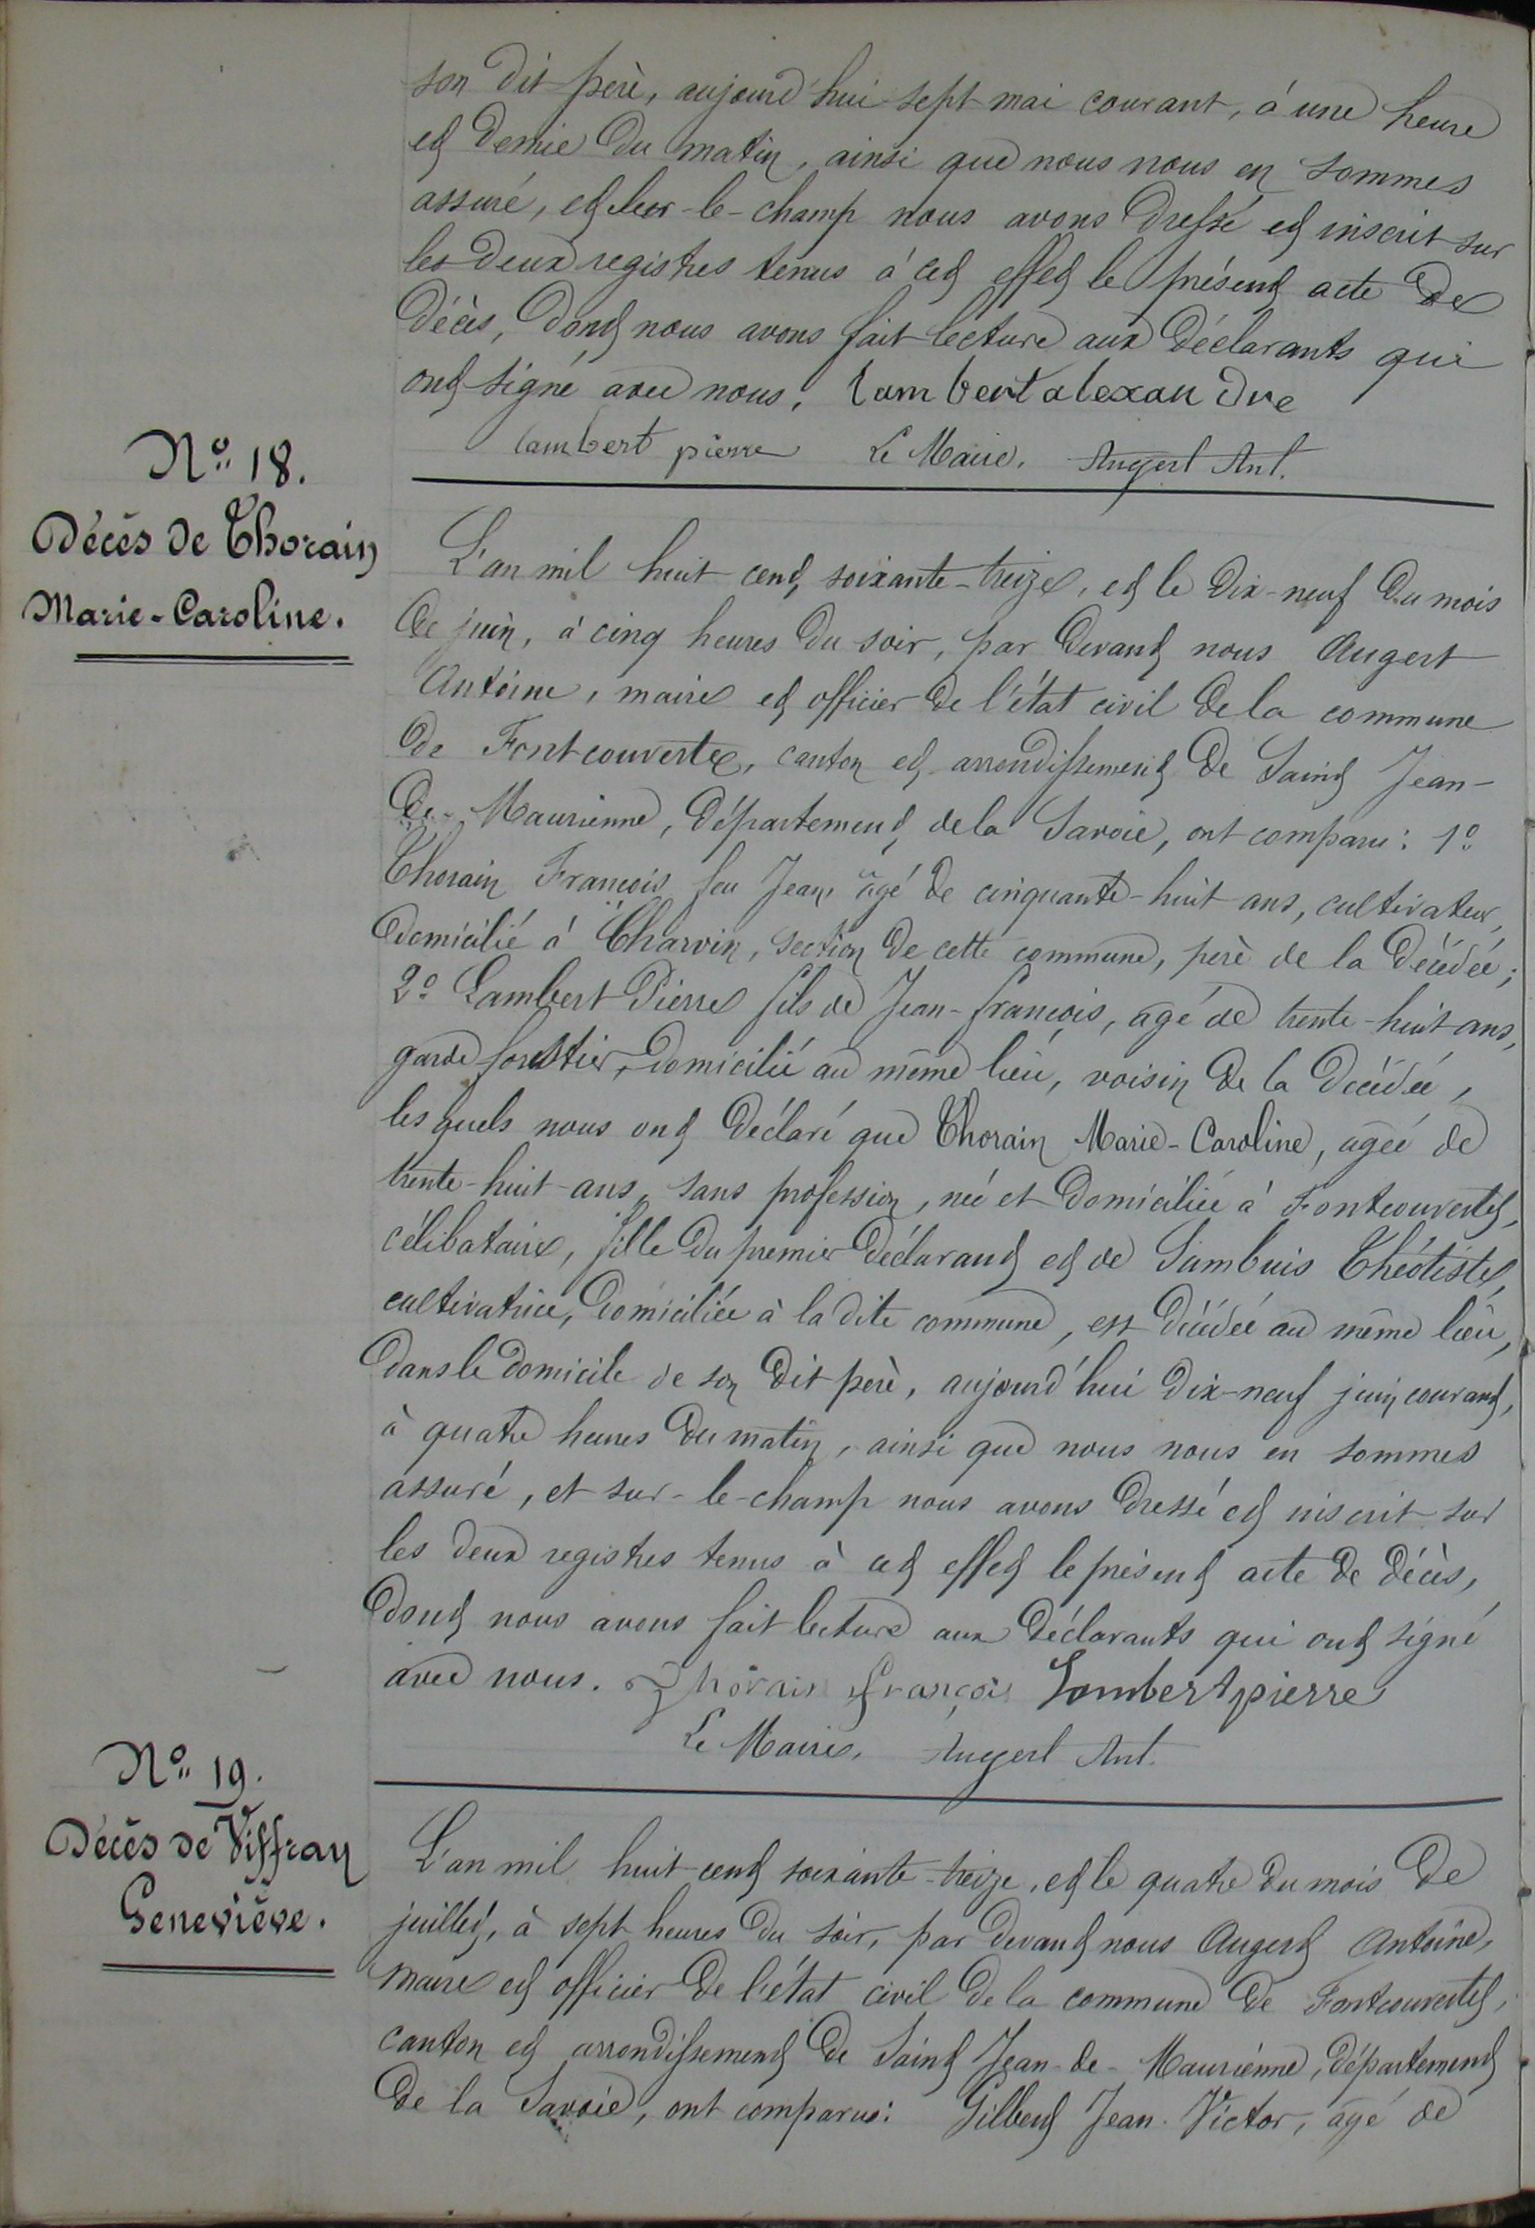 son dit père, aujourd'hui sept mai courant, à une heure
et demie du matin, ainsi que nous nous en sommes
assuré, et sur-le-champ nous avons dressé et inscrit sur
les deux registres tenus à cet effet le présent acte de
décès, dont nous avons fait lecture aux déclarants qui
ont signé avec nous. Lambert alexandre
lambert pierre Le Maire. Augert Ant.
N° 18.
Décès de Thorain
Marie-Caroline.
L'an mil huit cent soixante-treize, et le dix-neuf du mois
de juin, à cinq heures du soir, par devant nous Augert
Antoine, maire et officier de l'état civil de la commune
de Fontcouverte, canton et arrondissement de Saint Jean-
de-Maurienne, département de la Savoie, ont comparu: 1°
Thorain François feu Jean âgé de cinquante-huit ans, cultivateur,
domicilié à Charvin, section de cette commune, père de la décédée;
2° Lambert Pierre fils de Jean-françois, âgé de trente-huit ans,
garde forestier, domicilié au même lieu, voisin de la décédée,
lesquels nous ont déclaré que Thorain Marie-Caroline, âgée de
trente-huit ans, sans profession, née et domiciliée à Fontcouverte,
célibataire, fille du premier déclarant et de Sambuis Théotiste,
cultivatrice, domiciliée à la dite commune, est décédée au même lieu,
dans le domicile de son dit père, aujourd'hui dix-neuf juin courant,
à quatre heures du matin, ainsi que nous nous en sommes
assuré, et sur-le-champ nous avons dressé et inscrit sur
les deux registres tenus à cet effet le présent acte de décès,
dont nous avons fait lecture aux déclarants qui ont signé
avec nous. Thorain françois Lambert pierre
Le Maire. Augert Ant.
N° 19.
Décès de Viffray
Geneviève.
L'an mil huit cent soixante-treize, et le quatre du mois de
juillet, à sept heures du soir, par devant nous Augert Antoine,
maire et officier de l'état civil de la commune de Fontcouverte,
canton et arrondissement de Saint Jean-de-Maurienne, département
de la Savoie, ont comparus: Gilbert Jean-Victor, âgé de